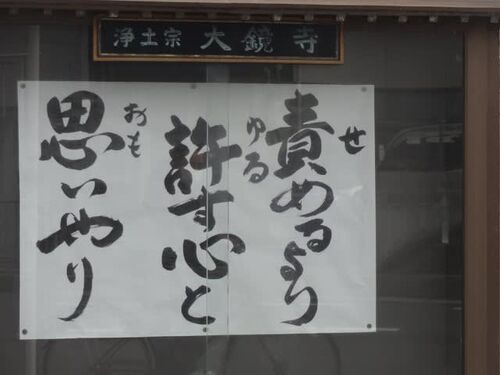 浄土宗 大鏡寺
責めるより
せ
許す心と
ゆる
思いやり
おも